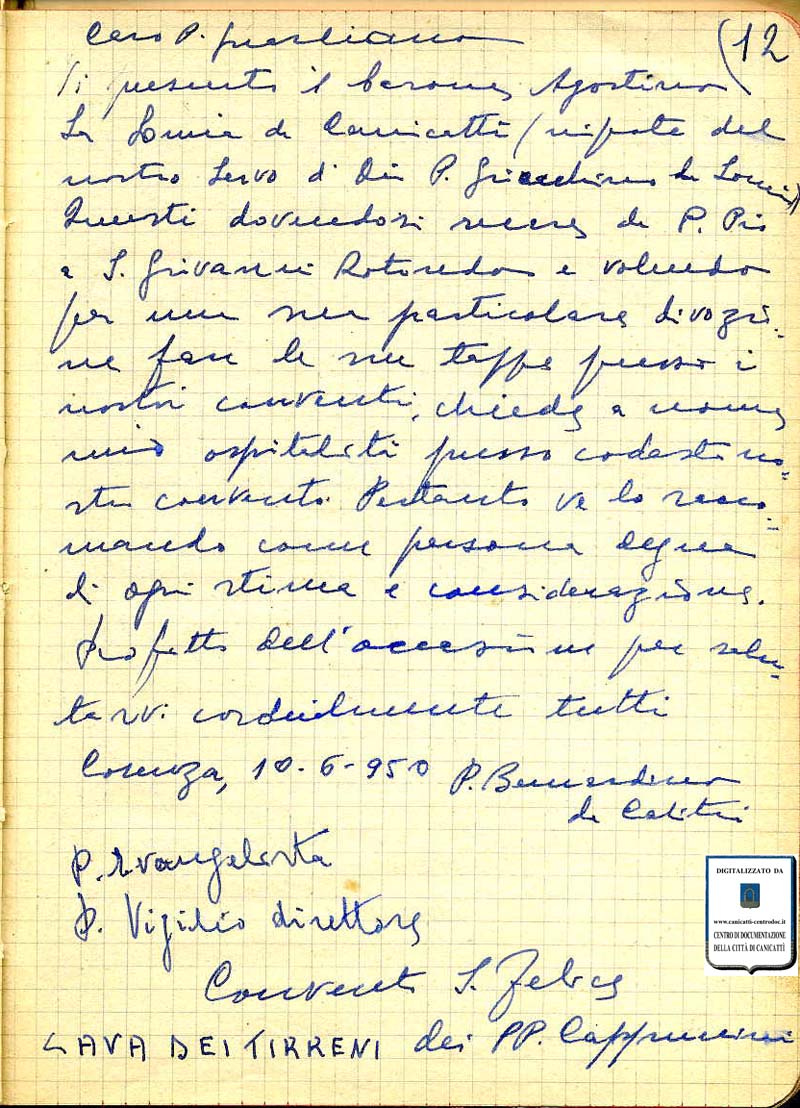 Caro P. Guardiano
(12
Vi presento il barone Agostino
La Lomia da Canicattì (nipote del
nostro Servo di Dio P. Gioachino La Lomia)
Questi dovendosi recare da P. Pio
a S. Giovanni Rotondo e volendo
per una sua particolare divozio-
ne fare le sue tappe presso i
nostri conventi, chiede a nome
mio ospitalità presso codesto no-
stro convento. Pertanto ve lo racco-
mando come persona degna
di ogni stima e considerazione.
Profitto dell'occasione per salu-
tarvi cordialmente tutti
Cosenza, 10-6-950 P. Bernardino
da Calitri
P. Evangelista
P. Vigilio direttore
Convento S. Felice
CAVA DEI TIRRENI dei PP. Cappuccini
DIGITALIZZATO DA
www.canicatti-centrodoc.it
CENTRO DI DOCUMENTAZIONE
DELLA CITTÀ DI CANICATTÌ